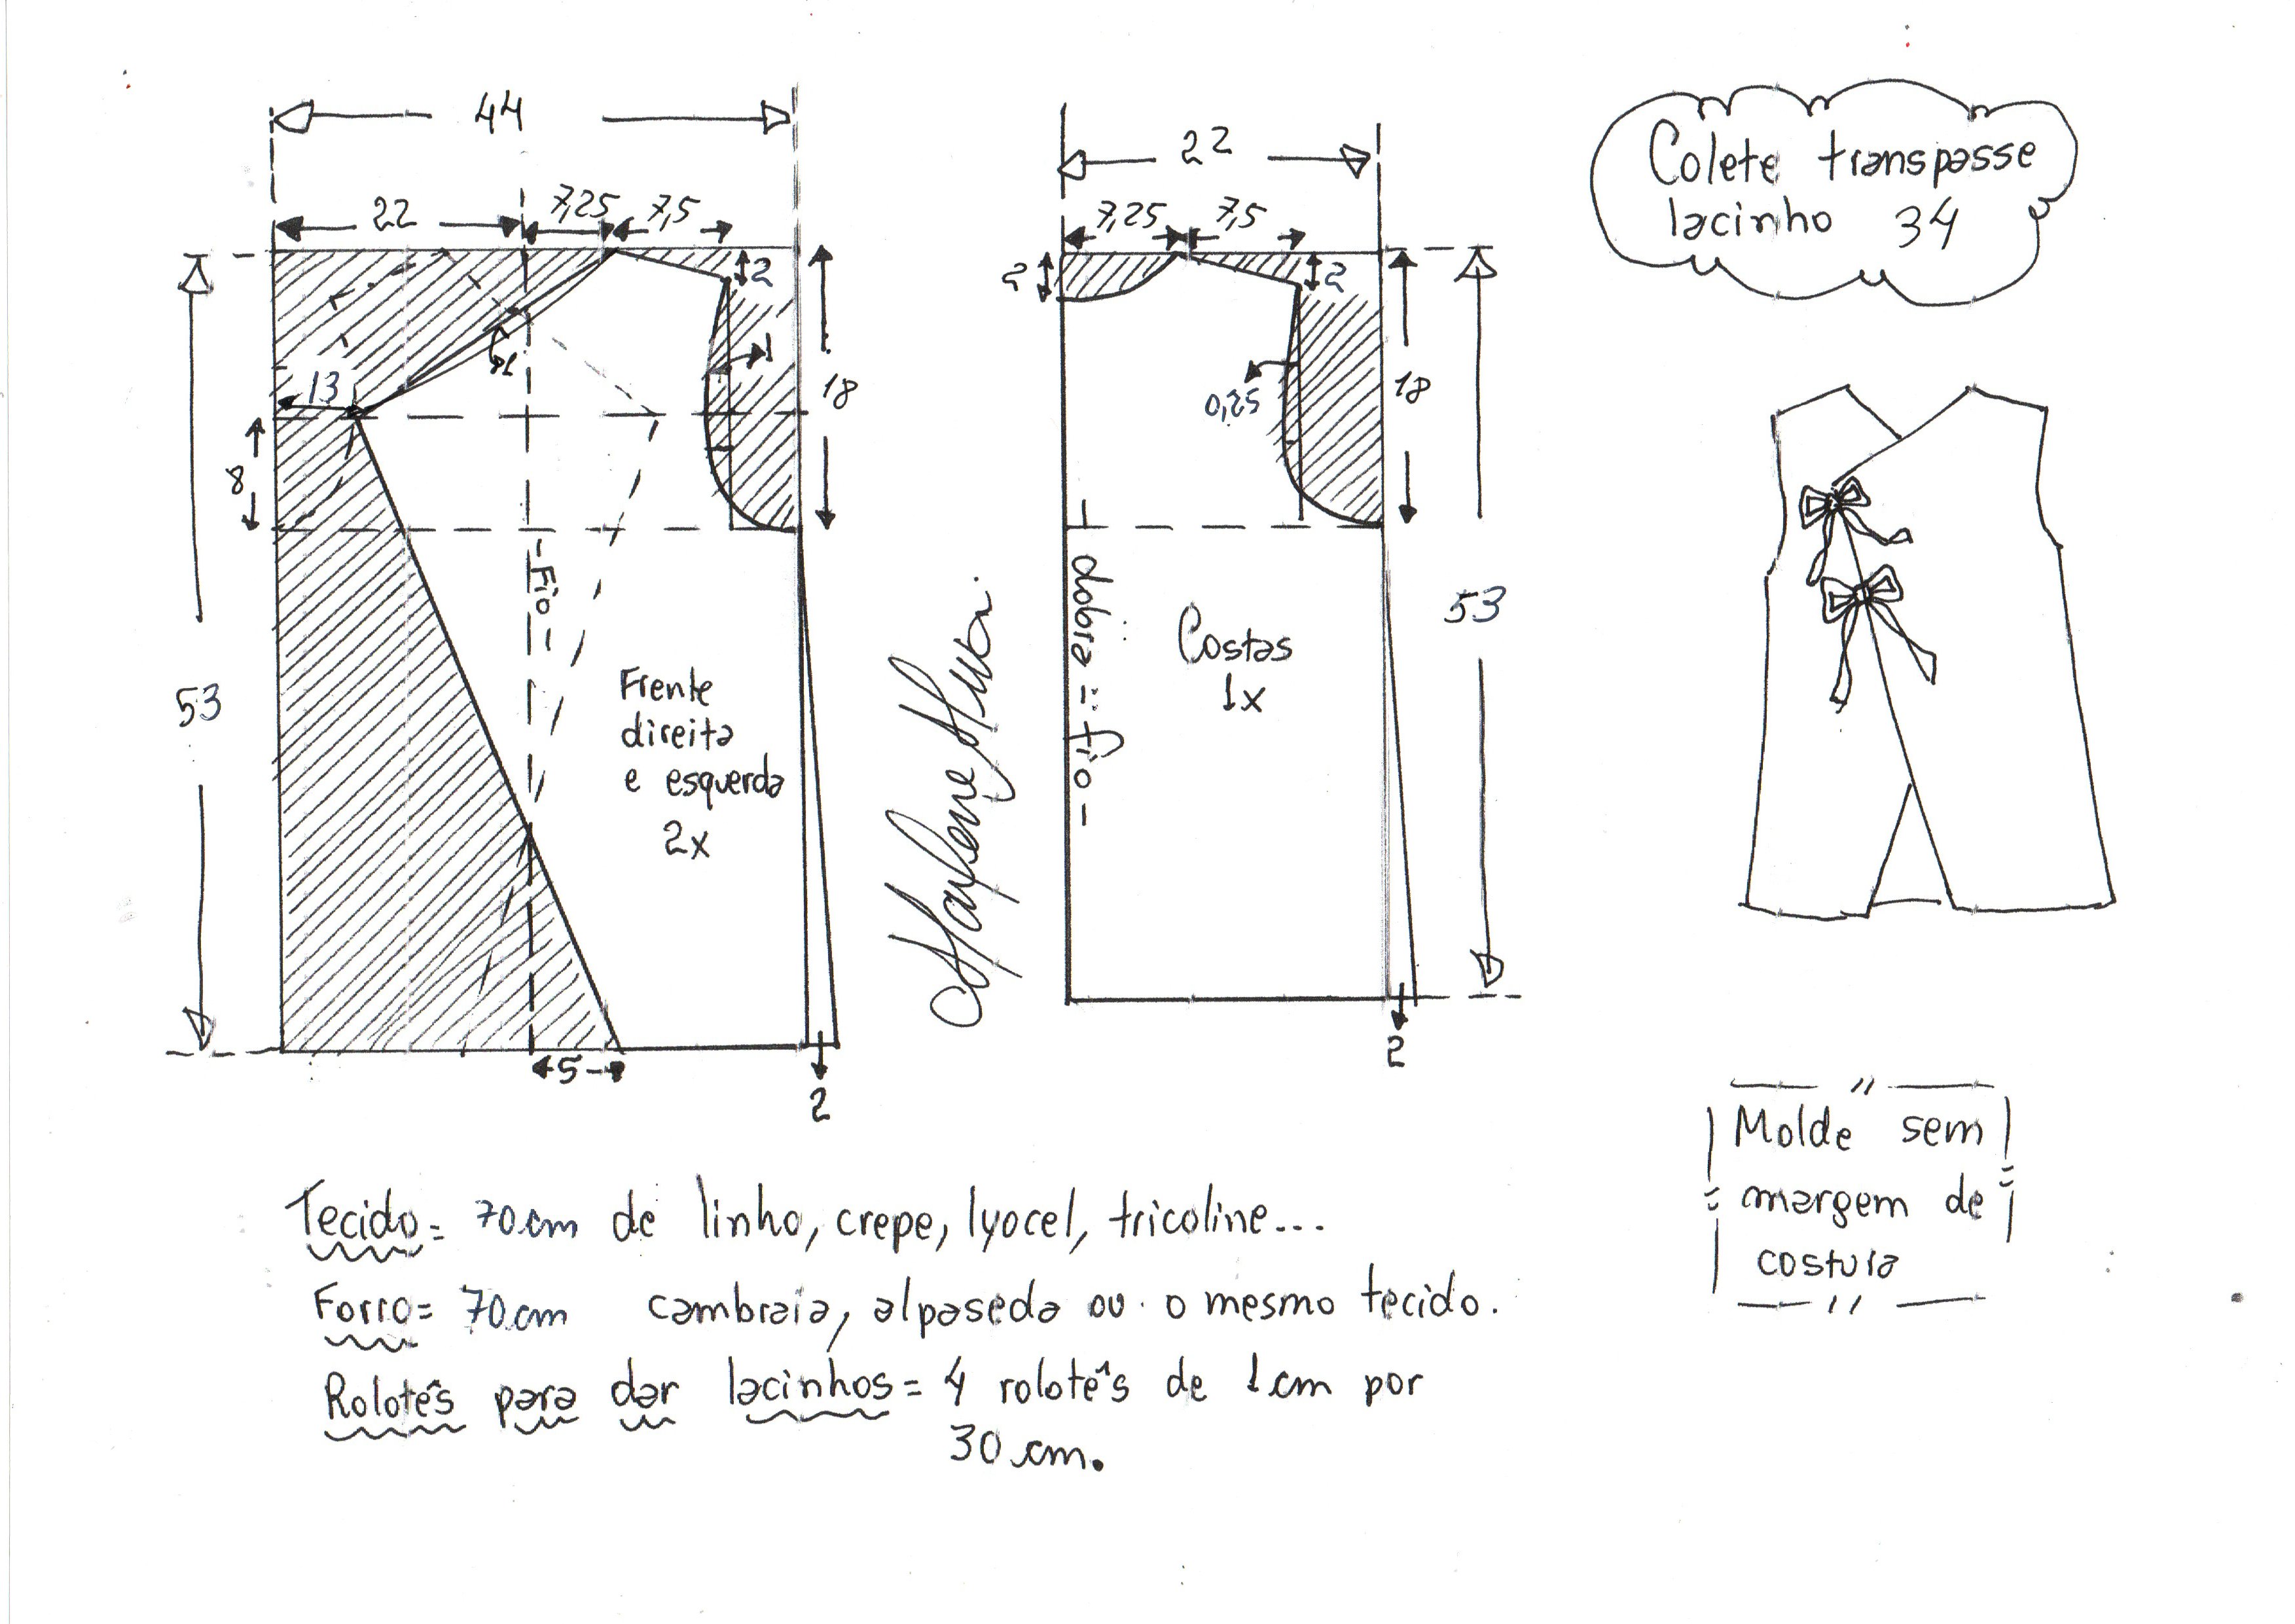 44
22
7,25
7,5
2
1
1
13
8
18
53
- Fio -
Frente
direita
e esquerda
2x
5
2
Marlene Mukai
22
7,25
7,5
2
2
0,25
18
53
dobra = fio -
Costas
1x
2
Colete transpasse
lacinho 34
Molde sem
margem de
costura
Tecido = 70cm de linho, crepe, lyocel, tricoline...
Forro = 70cm cambraia, alpaseda ou o mesmo tecido.
Rolotês para dar lacinhos = 4 rolotês de 1cm por
30 cm.